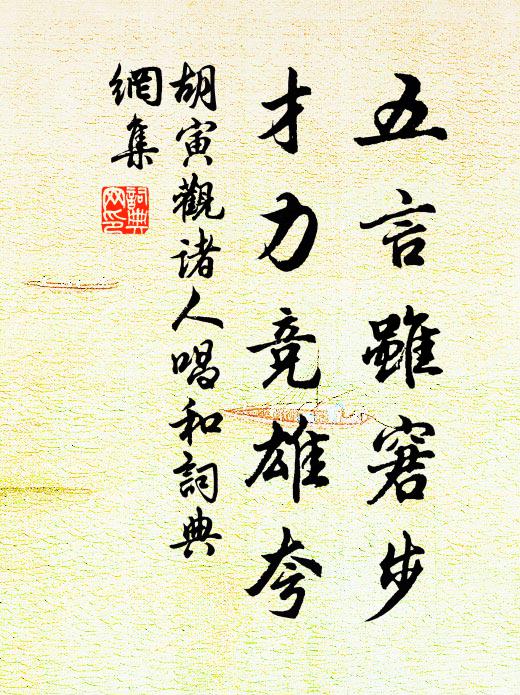 五言雖窘步
才力竞雄夸
胡寅觀诸人唱和詞典
網集
詞典
网印